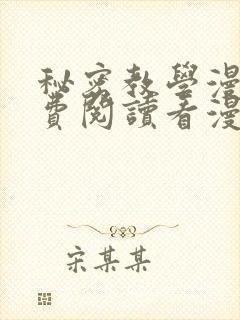 秘密教學漫
費閱讀看漫
宋某某